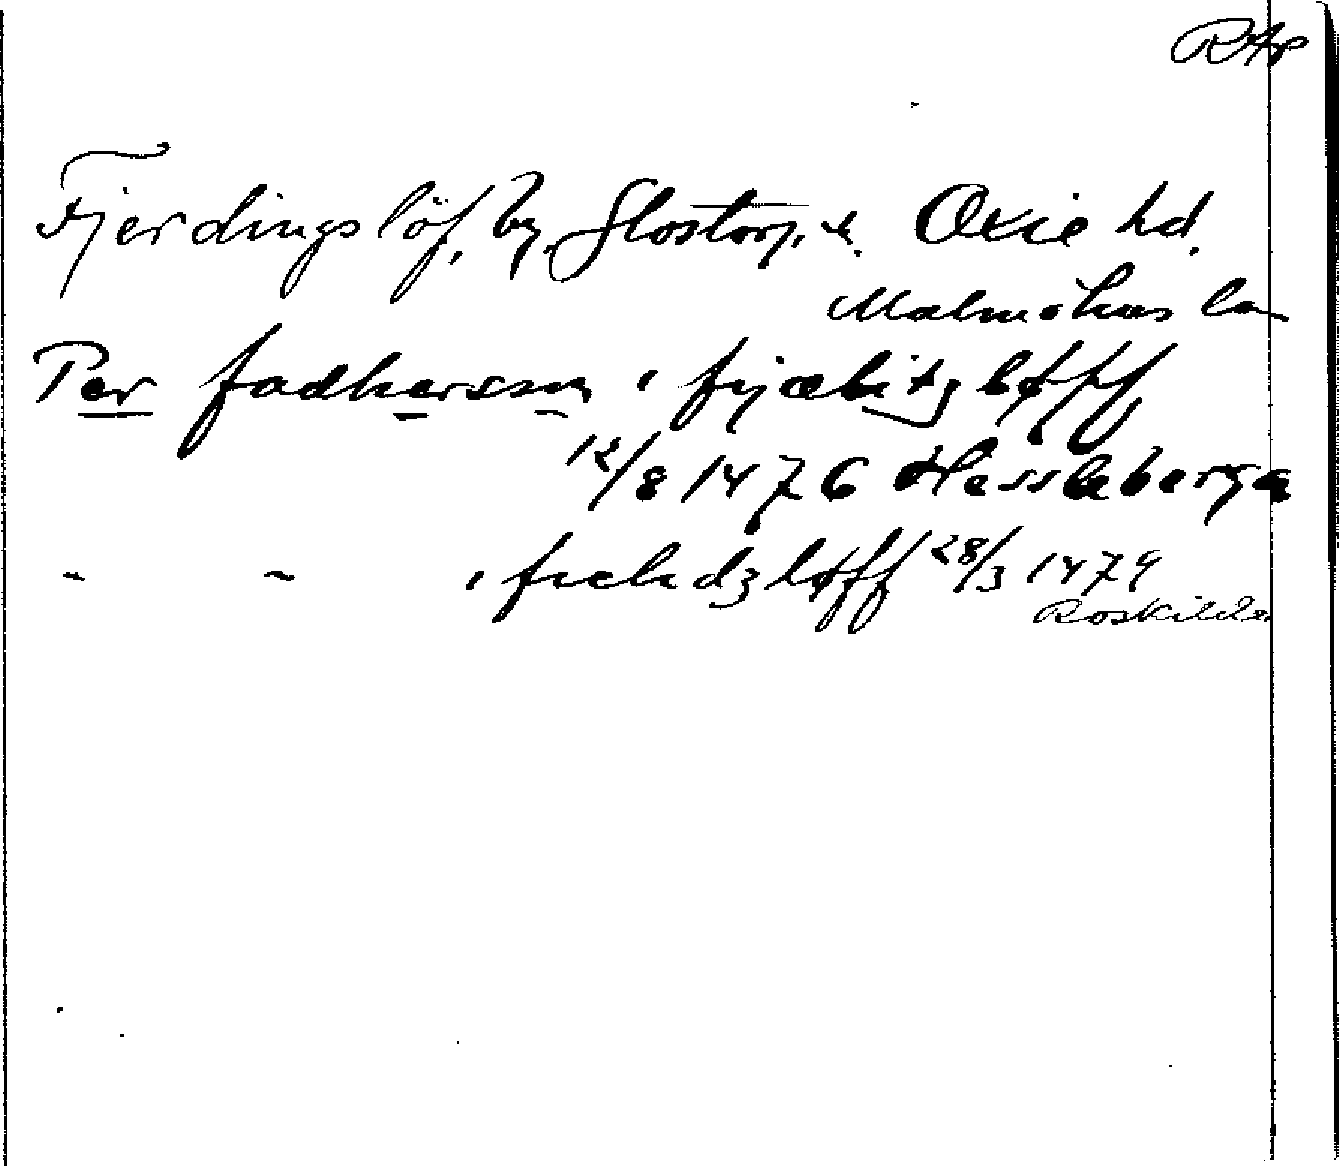 RAp
Fjerdingslöf, by, Glostorp, s. Oxie hd.
Malmöhus län
Per fadhersson i fijælitzløff
12/8 1476 Hessleberga
- - i fiehdzløff 28/3 1479
Roskilde